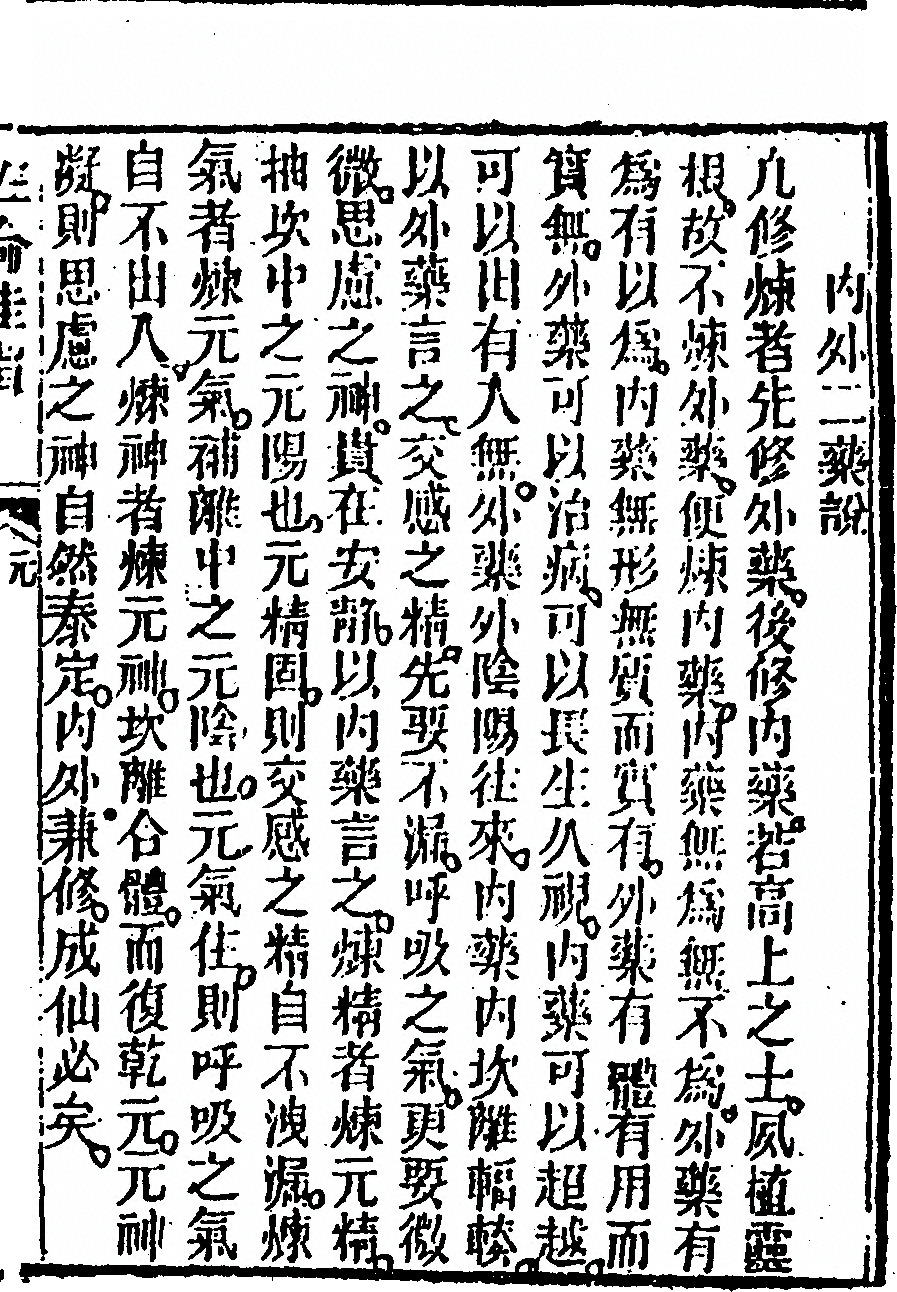 內外二藥說
凡修煉者先修外藥後修內藥若高上之士夙植靈
根故不煉外藥便煉內藥內藥無爲無不爲外藥有
爲有以爲內藥無形無質而實有外藥有體有用而
實無外藥可以治病可以長生久視內藥可以超越
可以出有入無外藥外陰陽往來內藥內坎離輻輳
以外藥言之交感之精先要不漏呼吸之氣更要微
微思慮之神貴在安靜以內藥言之煉精者煉元精
抽坎中之元陽也元精固則交感之精自不洩漏煉
氣者煉元氣補離中之元陰也元氣住則呼吸之氣
自不出入煉神者煉元神坎離合體而復乾元元神
凝則思慮之神自然泰定內外兼修成仙必矣
性命圭旨
元